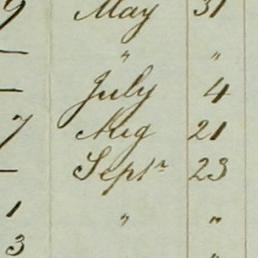 9 May 31
— " "
— July 4
7 Aug 21
— Septr 23
1 " "
3 "